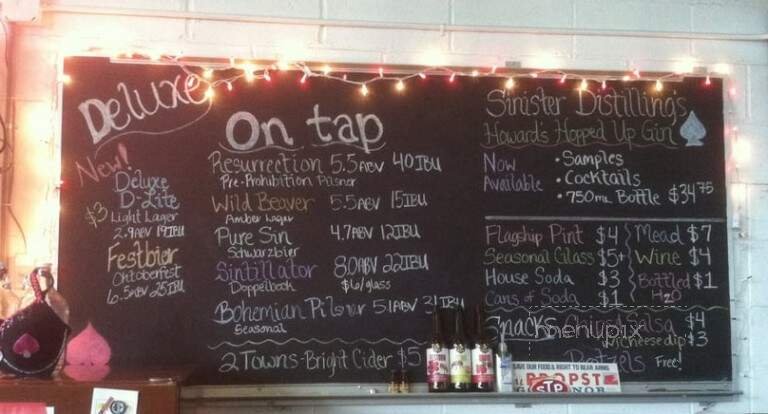 Deluxe
New!
Deluxe
D-Lite
$3 Light Lager
2.9ABV 19IBU
Festbier
Oktoberfest
6.5ABV 25IBU
On tap
Resurrection 5.5ABV 40IBU
Pre-Prohibition Pilsner
Wild Beaver 5.5ABV 15IBU
Amber Lager
Pure Sin 4.7ABV 12IBU
Schwarzbier
Sintillator 8.0ABV 22IBU
Doppelbock $6/glass
Bohemian Pilsner 5.1ABV 31IBU
Seasonal
2 Towns-Bright Cider $5
Sinister Distilling's
Howard's Hopped Up Gin
Now Available
• Samples
• Cocktails
• 750ml Bottle $34.75
Flagship Pint $4
Seasonal Glass $5+
House Soda $3
Cans of Soda $1
Mead $7
Wine $4
Bottled H2O $1
Snacks Chips Salsa $4
w/cheese dip $3
Pretzels Free!
SAVE OUR FOOD & RIGHT TO BEAR ARMS
PROPST
STP
menupix